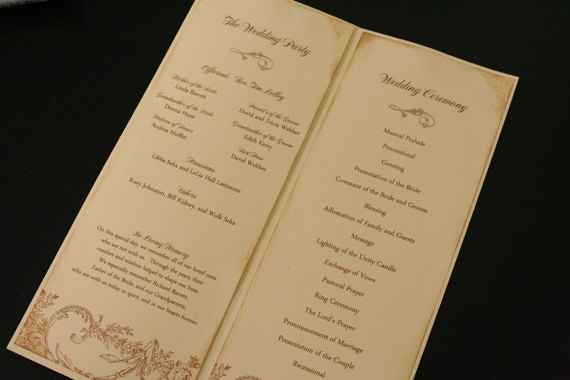 The Wedding Party
Officiant: Rev. Jim Kelley
Mother of the Bride
Linda Barrett
Grandmother of the Bride
Donna Hunt
Matron of Honor
Andrea Moffitt
Parents of the Groom
David and Tricia Walther
Grandmother of the Groom
Edith Kurey
Best Man
David Walther
Musicians
Libba Seka and LeGa Hall
Ushers
Rory Johnston, Bill Kidney, and Wade Seka
In Loving Memory
On this special day, we remember all of our loved ones
who are not with us. Through the years, their
comfort and wisdom helped to shape our lives.
We especially remember Richard Barrett,
Father of the Bride, and our Grandparents,
who are with us today in spirit, and in our hearts forever.
Wedding Ceremony
Musical Prelude
Processional
Greeting
Presentation of the Bride
Covenant of the Bride and Groom
Blessing
Affirmation of Family and Guests
Message
Lighting of the Unity Candle
Exchange of Vows
Pastoral Prayer
Ring Ceremony
The Lord's Prayer
Pronouncement of Marriage
Presentation of the Couple
Recessional